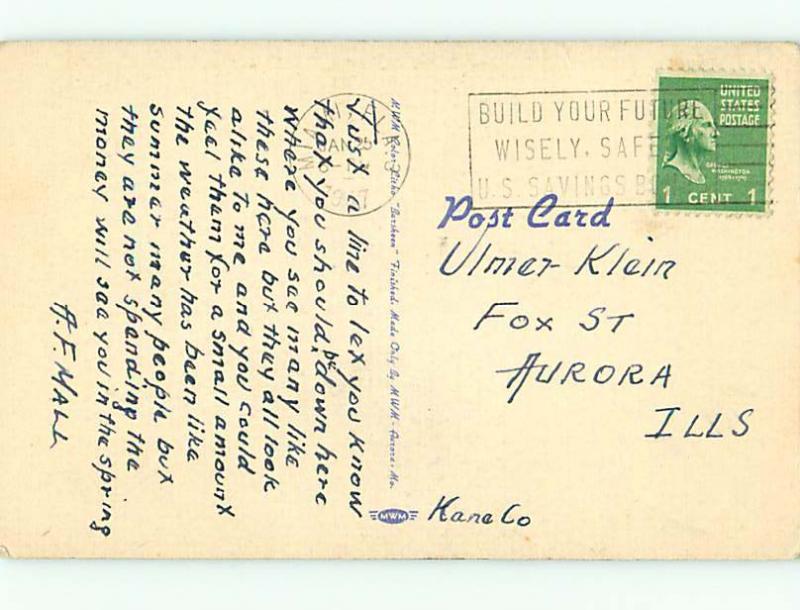 Just a line to let you know
that you should be down here
where you see many like
these here but they all look
alike to me and you could
feel them for a small amount
the weather has been like
summer many people but
they are not spending the
money will see you in the spring
A.F. MALL
MWM Color-Litho. "Bursheen" Finished. Made Only By MWM - Aurora, Mo.
MWM
JAN 25
1947
BUILD YOUR FUTURE
WISELY, SAFE
U.S. SAVINGS B
UNITED
STATES
POSTAGE
GEORGE
WASHINGTON
1 CENT 1
Post Card
Ulmer Klein
Fox ST
AURORA
ILLS
Kane Co